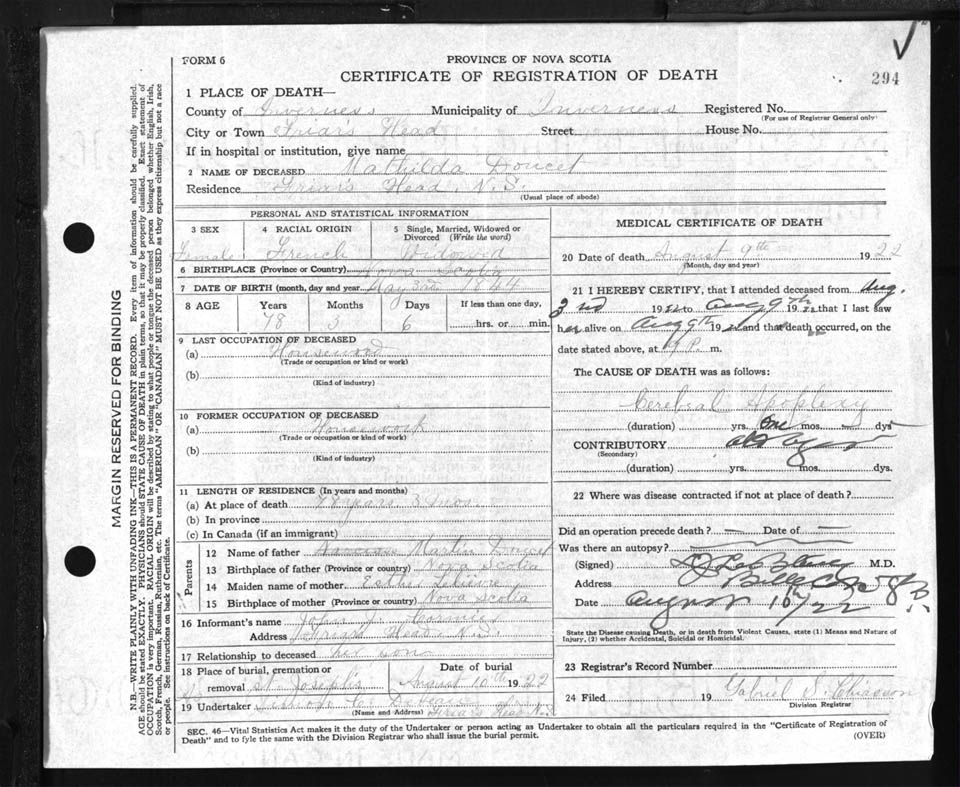 FORM 6
PROVINCE OF NOVA SCOTIA
CERTIFICATE OF REGISTRATION OF DEATH
294
1 PLACE OF DEATH—
County of Inverness Municipality of Inverness Registered No.
(For use of Registrar General only)
City or Town Friars Head Street House No.
If in hospital or institution, give name
2 NAME OF DECEASED Mathilda Doucet
Residence Friar's Head, N.S.
(Usual place of abode)
PERSONAL AND STATISTICAL INFORMATION
3 SEX 4 RACIAL ORIGIN 5 Single, Married, Widowed or Divorced (Write the word)
Female French Widowed
6 BIRTHPLACE (Province or Country) Nova Scotia
7 DATE OF BIRTH (month, day and year) May 3rd 1844
8 AGE Years Months Days If less than one day,
78 3 6 hrs. or min.
9 LAST OCCUPATION OF DECEASED
(a)
(Trade or occupation or kind or work)
(b)
(Kind of industry)
10 FORMER OCCUPATION OF DECEASED
(a) Housework
(Trade or occupation or kind of work)
(b)
(Kind of industry)
11 LENGTH OF RESIDENCE (In years and months)
(a) At place of death 78 years 3 mos.
(b) In province
(c) In Canada (if an immigrant)
Parents
12 Name of father Martin Doucet
13 Birthplace of father (Province or country) Nova Scotia
14 Maiden name of mother Esther
15 Birthplace of mother (Province or country) Nova Scotia
16 Informant's name John J.
Address Friars Head N.S.
17 Relationship to deceased her son
18 Place of burial, cremation or removal St Joseph's
Date of burial August 10th 1922
19 Undertaker
(Name and Address)
MEDICAL CERTIFICATE OF DEATH
20 Date of death August 9th 1922
(Month, day and year)
21 I HEREBY CERTIFY, that I attended deceased from Aug.
3rd 1922 to Aug 9th 1922 that I last saw
her alive on Aug 9th 1922 and that death occurred, on the
date stated above, at P. m.
The CAUSE OF DEATH was as follows:
Cerebral Apoplexy
(duration) yrs. One mos. dys
CONTRIBUTORY
(Secondary)
(duration) yrs. mos. dys.
22 Where was disease contracted if not at place of death?
Did an operation precede death? — Date of —
Was there an autopsy?
(Signed) M.D.
Address Belle Cote
Date August 10th/22
State the Disease causing Death, or in death from Violent Causes, state (1) Means and Nature of
Injury, (2) whether Accidental, Suicidal or Homicidal.
23 Registrar's Record Number
24 Filed 19 Gabriel S. Chiasson
Division Registrar
SEC. 46—Vital Statistics Act makes it the duty of the Undertaker or person acting as Undertaker to obtain all the particulars required in the "Certificate of Registration of
Death" and to fyle the same with the Division Registrar who shall issue the burial permit.
(OVER)
MARGIN RESERVED FOR BINDING
N.B.—WRITE PLAINLY WITH UNFADING INK—THIS IS A PERMANENT RECORD. Every item of information should be carefully supplied.
AGE should be stated EXACTLY. PHYSICIANS should STATE CAUSE OF DEATH in plain terms, so that it may be properly classified. Exact statement of
OCCUPATION is very important. RACIAL ORIGIN will be described by stating to what people or tongue the deceased person belonged whether English, Irish,
Scotch, French, German, Russian, Ruthenian, etc. The terms "AMERICAN" OR "CANADIAN" MUST NOT BE USED as they express citizenship but not a race
or people. See instructions on back of Certificate.